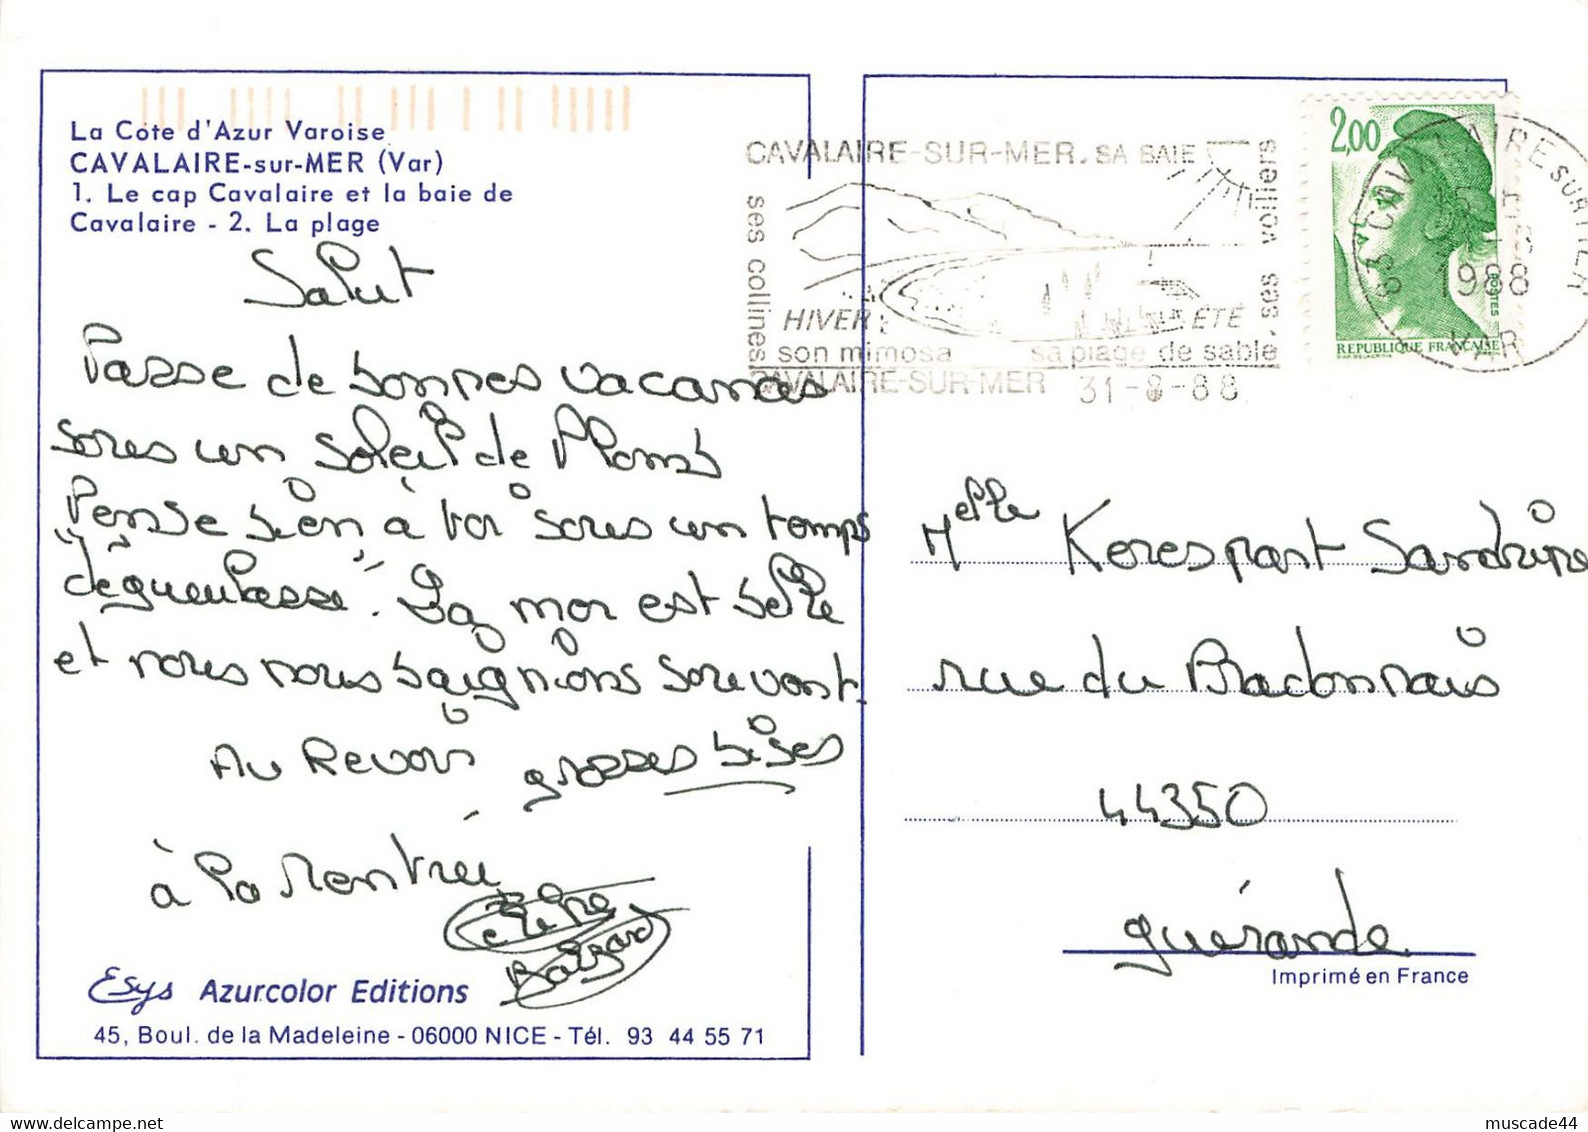 La Côte d'Azur Varoise
CAVALAIRE-sur-MER (Var)
1. Le cap Cavalaire et la baie de
Cavalaire - 2. La plage
Salut
Passe de bonnes vacances
sous un soleil de plomb
Pense bien à toi sous un temps
"dégueulasse". La mer est belle
et nous nous baignions souvent.
Au Revoir grosses bises
à la rentrée
Balzard
Esys Azurcolor Editions
45, Boul. de la Madeleine - 06000 NICE - Tél. 93 44 55 71
CAVALAIRE-SUR-MER. SA BAIE
ses collines
ses voiliers
HIVER ÉTÉ
son mimosa sa plage de sable
CAVALAIRE-SUR-MER 31-8-88
2,00
POSTES
REPUBLIQUE FRANÇAISE
83 CAVALAIRE SUR MER
1988
VAR
Melle Kerespant Sandrine
rue du Bradonnais
44350
guérande
Imprimé en France
muscade44